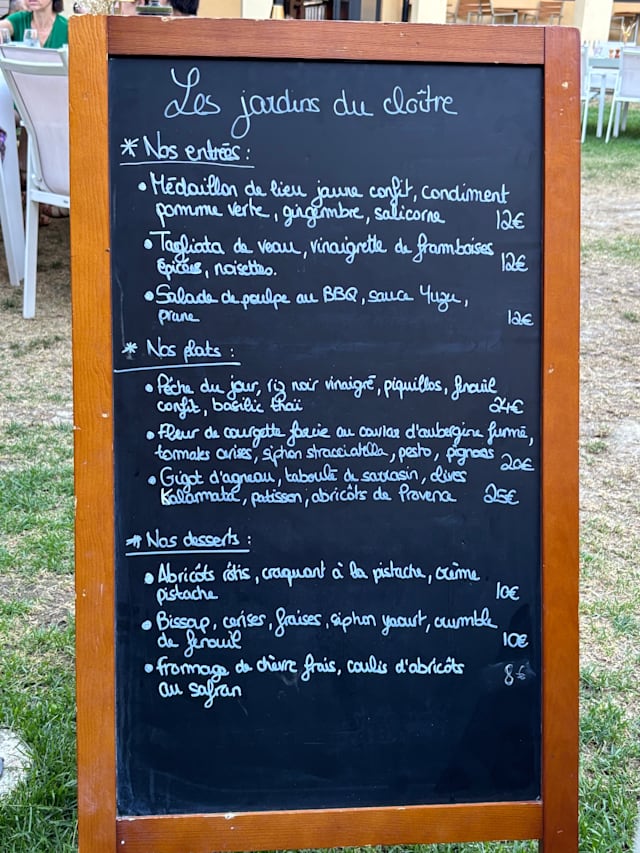 Les jardins du cloître
* Nos entrées :
• Médaillon de lieu jaune confit, condiment
pomme verte, gingembre, salicorne 12€
• Tagliata de veau, vinaigrette de framboises
épicées, noisettes. 12€
• Salade de poulpe au BBQ, sauce Yuzu,
prune 12€
* Nos plats :
• Pêche du jour, riz noir vinaigré, piquillos, fenouil
confit, basilic thaï 24€
• Fleur de courgette farcie au caviar d'aubergine fumé,
tomates cerises, siphon stracciatella, pesto, pignons 20€
• Gigot d'agneau, taboulé de sarrasin, olives
Kalamata, patisson, abricots de Provence 25€
* Nos desserts :
• Abricots rôtis, craquant à la pistache, crème
pistache 10€
• Bissap, cerises, fraises, siphon yaourt, crumble
de fenouil 10€
• Fromage de chèvre frais, coulis d'abricots
au safran 8€